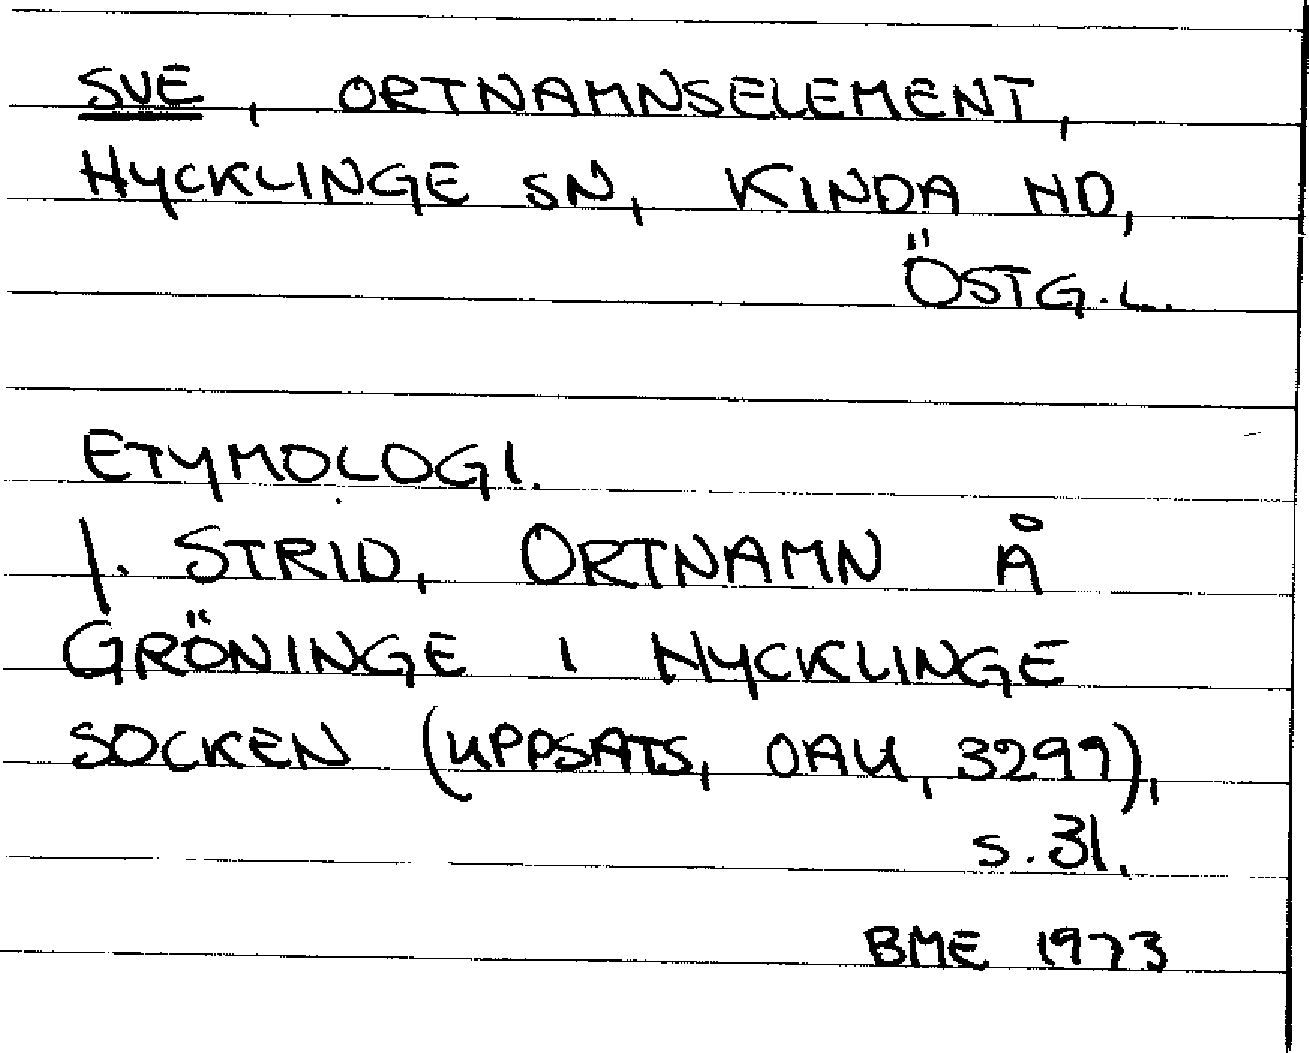 SVE, ORTNAMNSELEMENT,
HYCKLINGE SN, KINDA HD,
ÖSTG.L.
ETYMOLOGI.
J. STRID, ORTNAMN Å
GRÖNINGE I HYCKLINGE
SOCKEN (UPPSATS, OAU, 3299),
S. 31.
BME 1973